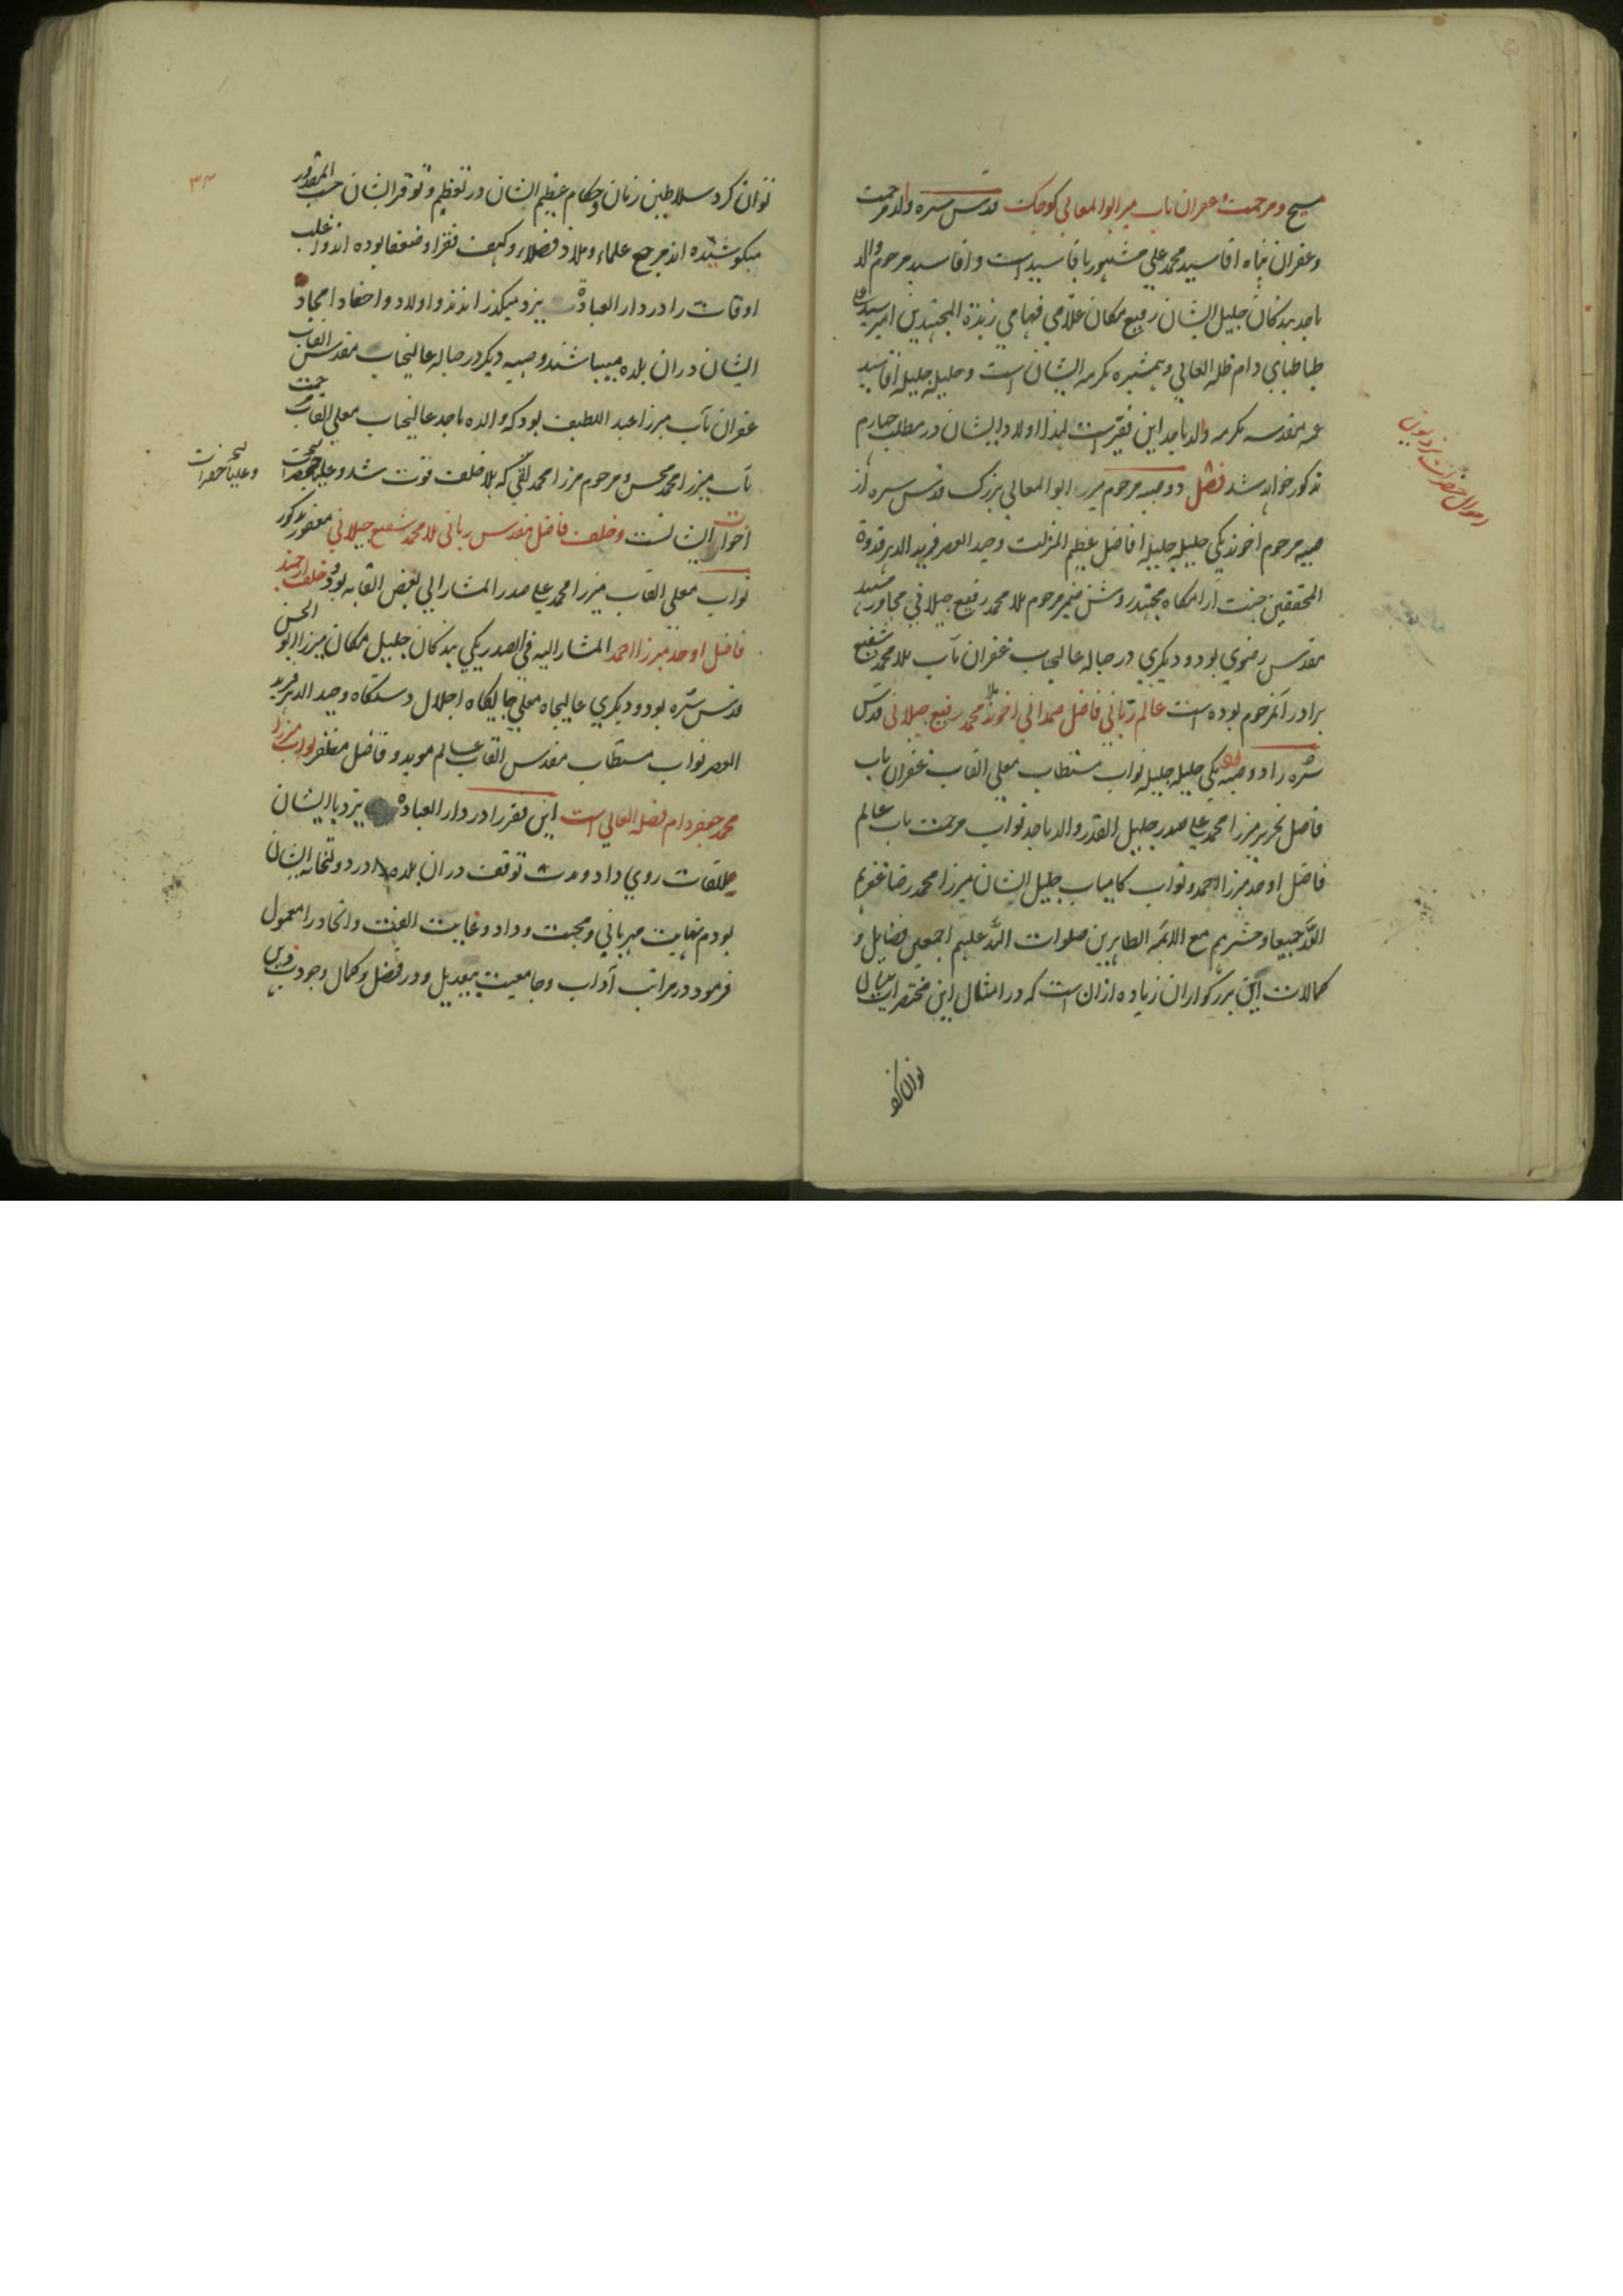 مسیح و مرحمت و غفران مآب میر ابوالمعالی کوچک قدس سره والد مرحمت
و غفران پناه اقا سید محمد علی مشهور باقا سید است و اقا سید مرحوم والد
ماجد بندکان جلیل الشان رفیع مکان علامی فهامی زبدة المجتهدین امیر سید علی
طباطبای دام ظله العالی و همشیره مکرمه ایشان است و حلیله جلیله اقا سید
عمه مقدسه مکرمه والد ماجد این فقیر است لهذا اولاد ایشان در مطلب چهارم
مذکور خواهد شد فصل دو صبیه مرحوم میرزا ابوالمعالی بزرک قدس سره از
صبیه مرحوم اخوند یکی حلیله جلیله افاضل عظیم المنزلت وحید العصر فرید الدهر قدوة
المحققین جنت ارامکاه مجتهد روشن ضمیر مرحوم ملا محمد رفیع جیلانی مجاور مشهد
مقدس رضوی بود و دیکری در حباله عالیجاب غفران مآب ملا محمد شفیع
برادر انمرحوم بوده است عالم ربانی فاضل صمدانی اخوند ملا محمد رفیع جیلانی قدس
سره را دو صبیه بود یکی حلیله جلیله نواب مستطاب معلی القاب غفران مآب
فاضل نحریر میرزا محمد علی صدر جلیل القدر والد ماجد نواب مرحمت مآب عالم
فاضل اوحد میرزا احمد و نواب کامیاب جلیل الشان میرزا محمد رضا غفرهم
الله جمیعا و حشرهم مع الائمه الطاهرین صلوات الله علیهم اجمعین فضایل و
کمالات این بزرکواران زیاده از ان است که در امثال این مختصرات بیان
توان کرد
احوال حضرات یزدیون
۳۴
توان کرد سلاطین زمان و حکام عظیم الشان در تعظیم و توقیر ایشان حسب المقدور
میکوشیده اند مرجع علماء و ملاذ فضلاء و کهف فقرا و ضعفا بوده اند و اغلب
اوقات را در دار العباده یزد میکذرانند و اولاد و احفاد امجاد
ایشان در ان بلده میباشند و صبیه دیکر در حباله عالیجاب مقدس القاب
غفران مآب میرزا عبد اللطیف بود که والده ماجد عالیجاب معلی القاب مرحمت
مآب میرزا محمد محسن و مرحوم میرزا محمد تقی که بلا خلف فوت شد و علیجناب حضرات
اخوات ایشانست و خلف فاضل مقدس ربانی ملا محمد شفیع جیلانی مغفور مذکور
نواب معلی القاب میرزا محمد علی صدر المشار الی بعض القابه بود و خلف ارجمند
فاضل اوحد میرزا احمد المشار الیه فی الصدر یکی بندکان جلیل مکان میرزا ابوالحسن
قدس سره بود و دیکری عالیجاه معلی جایکاه اجلال دستکاه وحید الدهر فرید
العصر نواب مستطاب مقدس القاب عالم موید و فاضل مظفر نواب میرزا
محمد جعفر دام فضله العالی است این فقیر را در دار العباده یزد با ایشان
ملاقات روی داد و مدت توقف در ان بلده در دولتخانه ایشان
بودم نهایت مهربانی و محبت و داد و غایت الفت و اتحاد را معمول
فرمود در مراتب آداب و جامعیت بیعدیل و در فضل و کمال و جودت